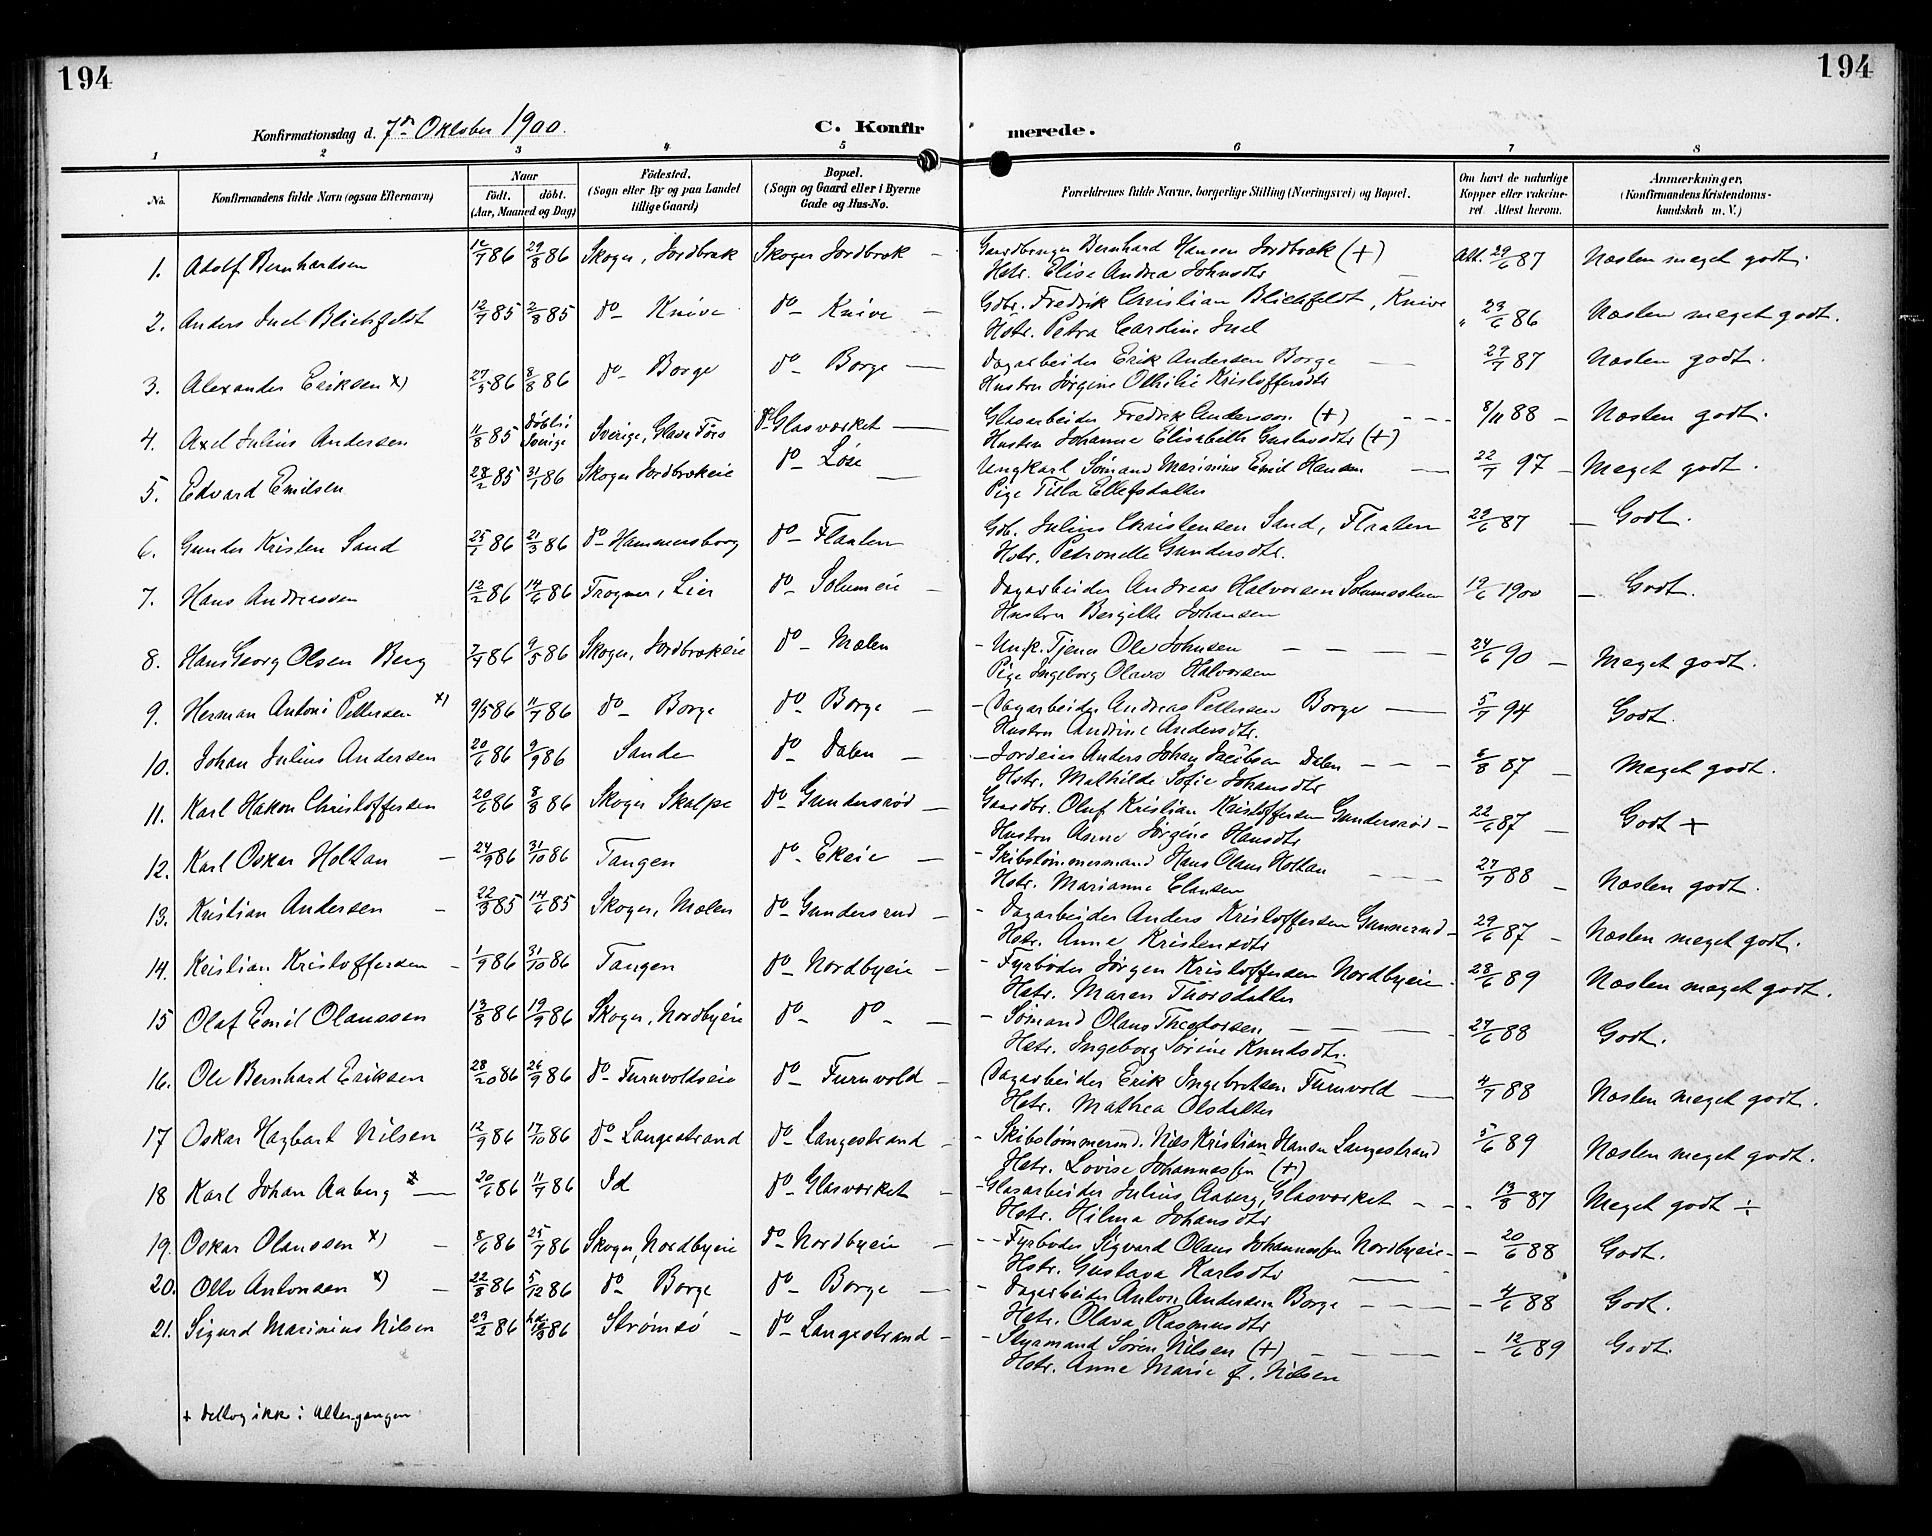 194
194
Konfirmationsdag d. 7de Oktober 1900.
C. Konfirmerede.
1 2 3 4 5 6 7 8
No. Konfirmandens fulde Navn (ogsaa Efternavn) Naar født. døbt. (Aar, Maaned og Dag) Fødested. (Sogn eller By og paa Landet tillige Gaard) Bopæl. (Sogn og Gaard eller i Byerne Gade og Hus-No. Forældrenes fulde Navne, borgerlige Stilling (Næringsvei) og Bopæl. Om havt de naturlige Kopper eller vakcineret. Attest herom. Anmærkninger. (Konfirmandens Kristendomskundskab m. V.)
1. Adolf Bernhardsen 12/7 86 29/8 86 Skoger, Jordbræk Skoger Jordbræk – Gaardbruger Bernhard Hansen Jordbræk (+) Att. 29/6 87 Næsten meget godt.
Hstr. Elise Andrea Johnsdtr –
2. Anders Juel Blichfeldt 12/7 85 2/8 85 do – Knive do – Knive – Gdbr. Fredrik Christian Blichfeldt, Knive " 23/6 86 Næsten meget godt.
Hstr. Petra Cardine Juel
3. Alexander Eriksen x) 27/5 86 8/8 86 do – Borge do – Borge – Dagarbeider Erik Andersen Borge – 29/7 87 Næsten godt.
Hustru Jørgine Othilie Kristoffersdtr
4. Axel Julius Andersen 11/8 85 Døbt i Sverige Sverige, Glava Førs do – Glasværket – Glasarbeider Fredrik Andersson (+) – – 8/11 88 – Næsten godt.
Hustru Johanne Elisabeth Gustavsdtr (+)
5. Edvard Emilsen 28/2 85 31/1 86 Skoger Jordbrækeie do – Løse – Ungkarl Sømand Marinius Emil Hansen – 22/7 97 – Meget godt.
Pige Tilla Ellefsdatter
6. Gunder Kristen Sand 25/1 86 21/3 86 do – Hammersborg do – Flaaten Gdb. Julius Christensen Sand, Flaaten 29/6 87 – Godt.
Hstr. Petronelle Gundersdtr.
7. Hans Andreassen 12/2 86 14/6 86 Frogner, Lier do – Solumeie – Dagarbeider Andreas Halvorsen 19/6 1900 – Godt.
Hustru Bergitte Johansen
8. Hans Georg Olsen Berg 7/4 86 9/5 86 Skoger, Jordbrækeie do – Mælen – Unk. Tjener Ole Johnsen – – – 24/6 90 – Meget godt.
Pige Ingeborg Olava Halvorsen
9. Herman Antoni Pettersen x) 9/5 86 11/7 86 do – Borge do – Borge – – Dagarbeider Andreas Pettersen Borge – 5/7 94 Godt.
Hustru Andrine Andersdtr.
10. Johan Julius Andersen 20/6 86 9/9 86 Sande do – Dalen – – Jordeier Anders Johan Jacobsen Dalen – – – 6/8 87 – Meget godt.
Hstr. Mathilde Sofie Johansdtr
11. Karl Hakon Christoffersen 20/6 86 8/8 86 Skoger Skalpe do – Gundersrød – Gaardbr. Oluf Kristian Kristoffersen Gundersrød – 22/6 87 – Godt +
Hustru Anne Jørgine Hansdtr
12. Karl Oskar Holtan – 24/9 86 31/10 86 Tangen do – Ekeie – – Skibstømmermand Hans Olaus Holtan – – – 27/7 88 – Næsten godt.
Hstr. Marianne Clausen
13. Kristian Andersen – 22/3 85 14/6 85 Skoger, Mælen do – Gundersrud – – Dagarbeider Anders Kristoffersen – 29/6 87 – Næsten meget godt.
Hstr. Anne Kristensdtr
14. Kristian Kristoffersen – 1/9 86 31/10 86 Tangen do – Nordbyeie – – Fyrbøder Jørgen Kristoffersen Nordbyeie – 28/6 89 Næsten meget godt.
Hstr. Maren Thorsdatter
15 Olaf Emil Olaussen 13/8 86 19/9 86 Skoger, Nordbyeie do – do – – – Sømand Olaus Theodorsen – – – 27/6 88 Godt.
Hstr. Ingeborg Sørine Knudsdtr.
16. Ole Bernhard Eriksen 28/20 86 26/9 86 do – Furnvoldseie do – Furnvold – Dagarbeider Erik Ingebretsen Furnvold – 4/7 88 Næsten meget godt.
Hstr. Mathea Olsdatter
17 Oskar Hagbart Nilsen 12/9 86 17/10 86 do – Langestrand do – Langestrand – – Skibstømmermd. Nils Kristian Hansen Langestrand 5/6 89 Næsten meget godt.
Hstr. Lovise Johannessen (+)
18 Karl Johan Aaberg x – 20/6 86 11/7 86 Id do – Glasværket – – Glasarbeider Julius Aaberg, Glasværket – – 13/8 87 Meget godt ÷
Hstr. Hilma Johansdtr
19. Oskar Olaussen x) – 8/6 86 25/7 86 Skoger, Nordbyeie do – Nordbyeie – – Fyrbøder Sigvard Olaus Johannessen Nordbyeie – 20/6 88 Godt.
Hstr. Gustava Karlsdtr –
20. Otto Antonsen x) – 22/8 86 5/12 86 do – Borge do – Borge – – Dagarbeider Anton Andersen Borge – – – 4/6 88 Godt.
Hstr. Olava Rasmusdtr
21. Sigurd Marinius Nilsen 29/2 86 86 Strømsø – do – Langestrand – – Styrmand Søren Nilsen (+) – – – 12/6 89 Godt.
Hstr. Anne Marie f. Nilsen
+ Deltog ikke i Altergangen